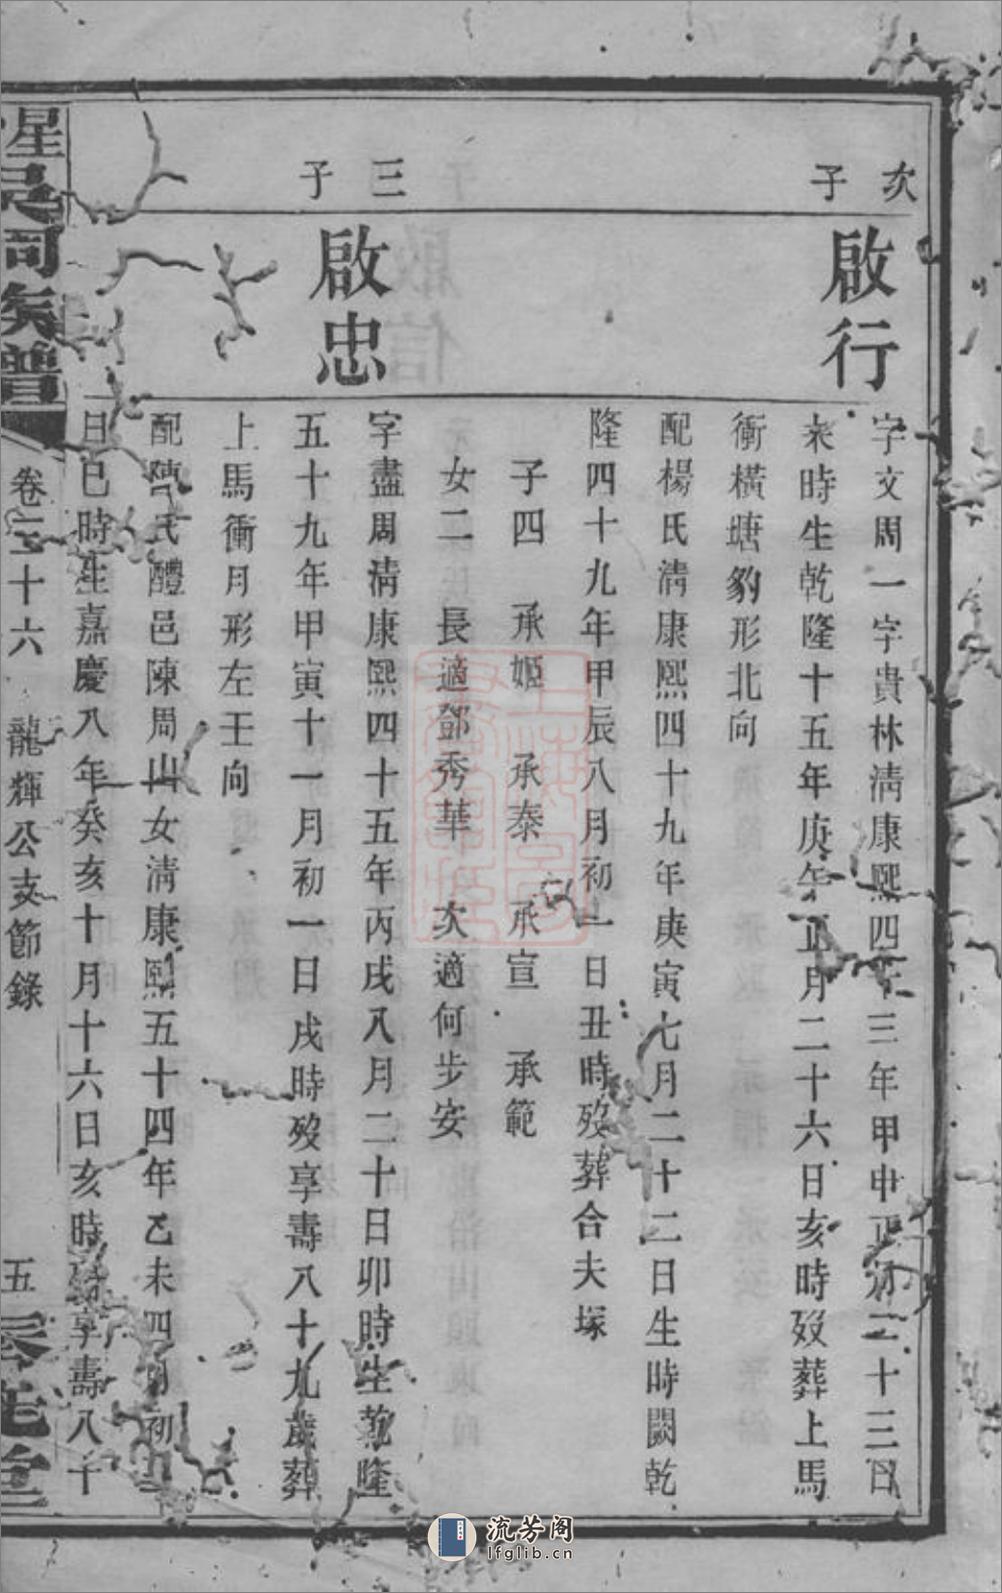 次子
啟行
字文周一字貴林清康熙四十三年甲申正月二十三日
未時生乾隆十五年庚午正月二十六日亥時歿葬上馬
衝橫塘豹形北向
配楊氏清康熙四十九年庚寅七月二十二日生時闕乾
隆四十九年甲辰八月初一日丑時歿葬合夫塚
子四 承姬 承泰 承宣 承範
女二 長適鄧秀華 次適何步安
三子
啟忠
字盡周清康熙四十五年丙戌八月二十日卯時生乾隆
五十九年甲寅十一月初一日戌時歿享壽八十九歲葬
上馬衝月形左壬向
配陳氏醴邑陳周山女清康熙五十四年乙未四月初
日巳時生嘉慶八年癸亥十月十六日亥時 享壽八十
星 周族譜
卷二十六 龍輝公支節錄
五
堂
流芳阁
lfglib.cn